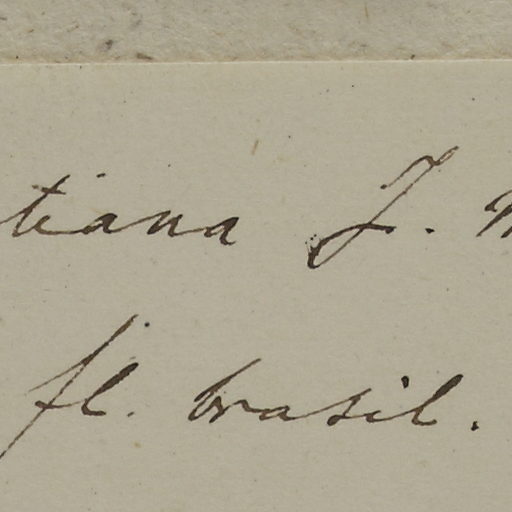 tiana J.
fl. brasil.